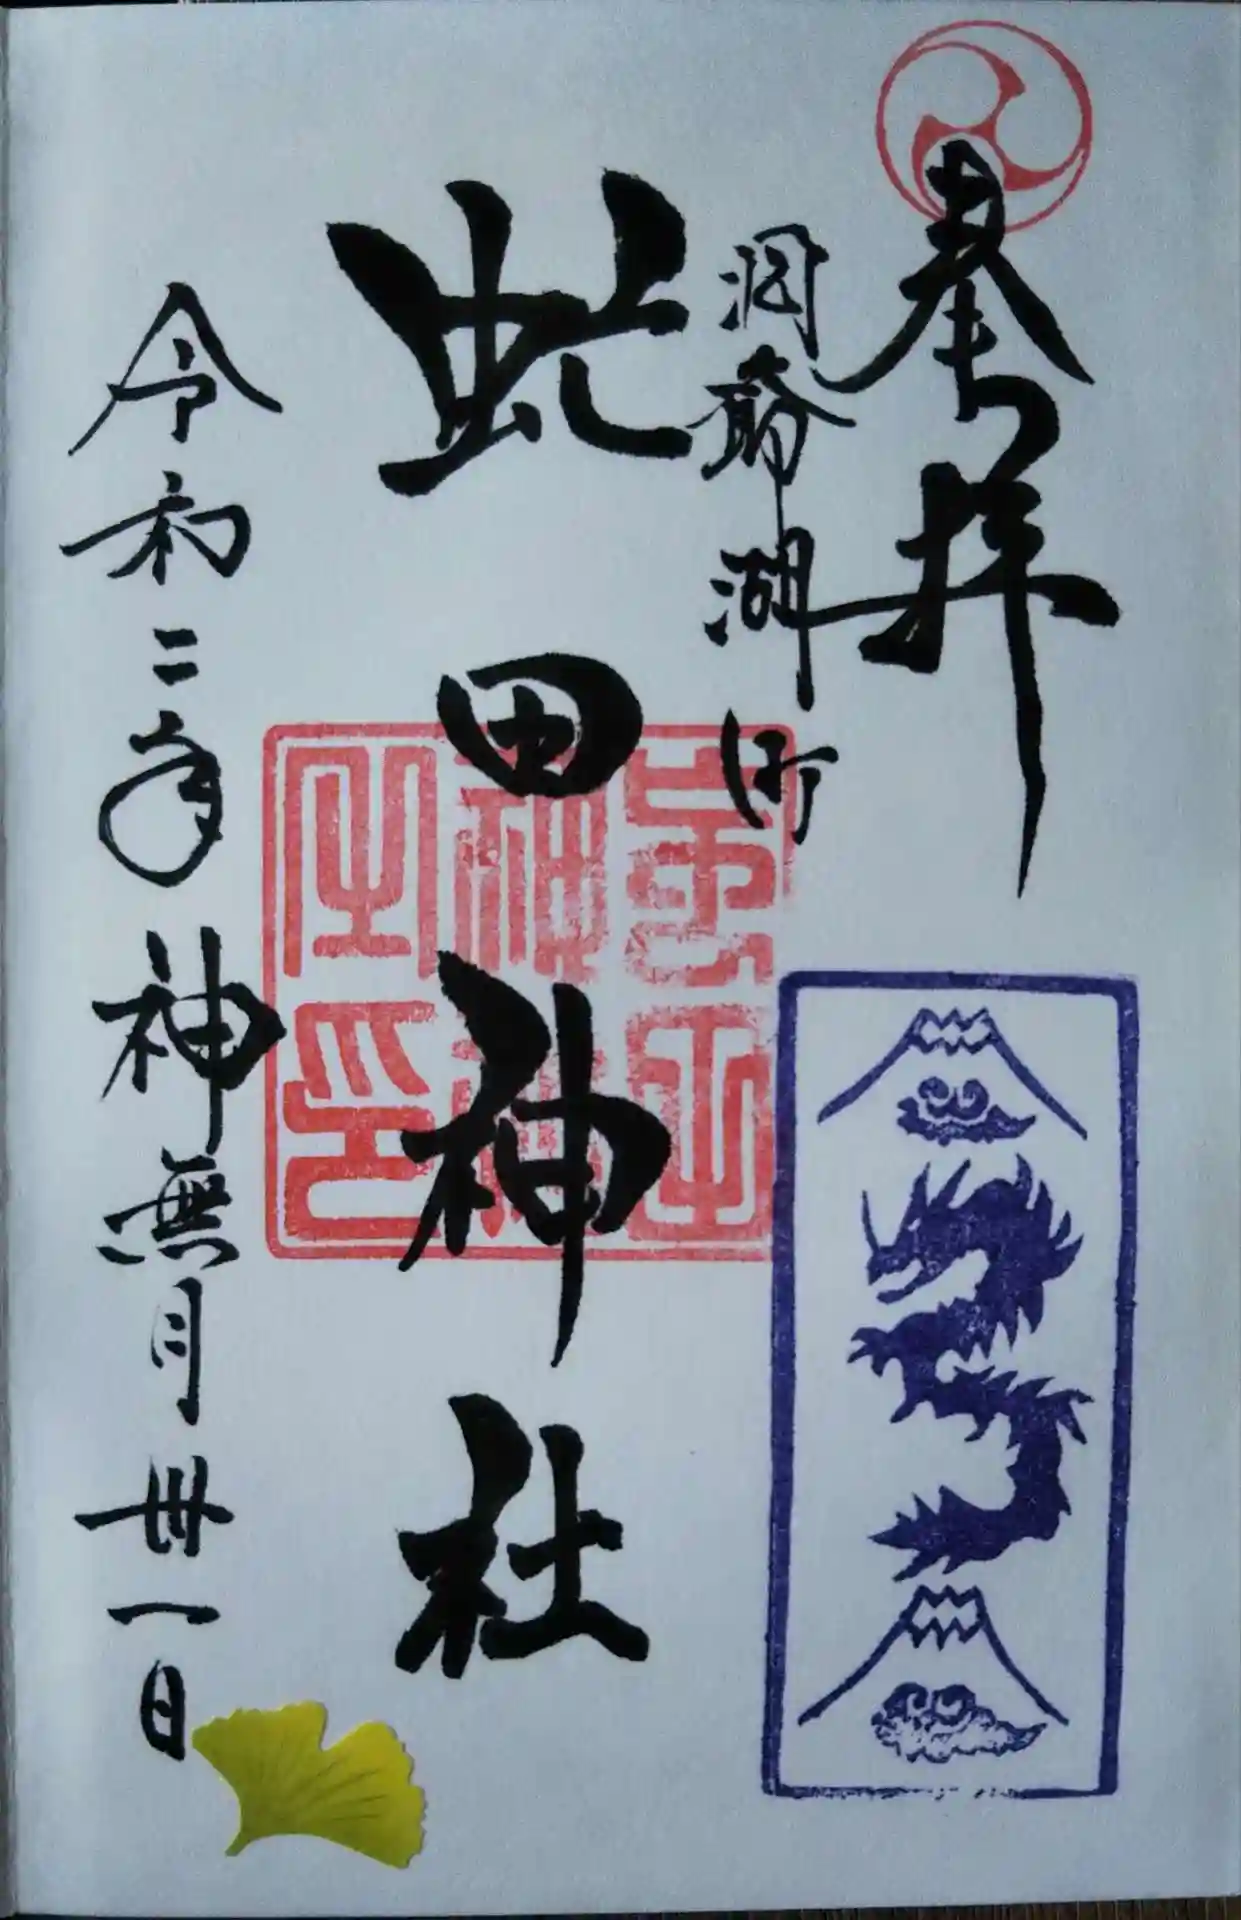 奉拝
洞爺湖町
虻田神社
令和二年神無月卅一日